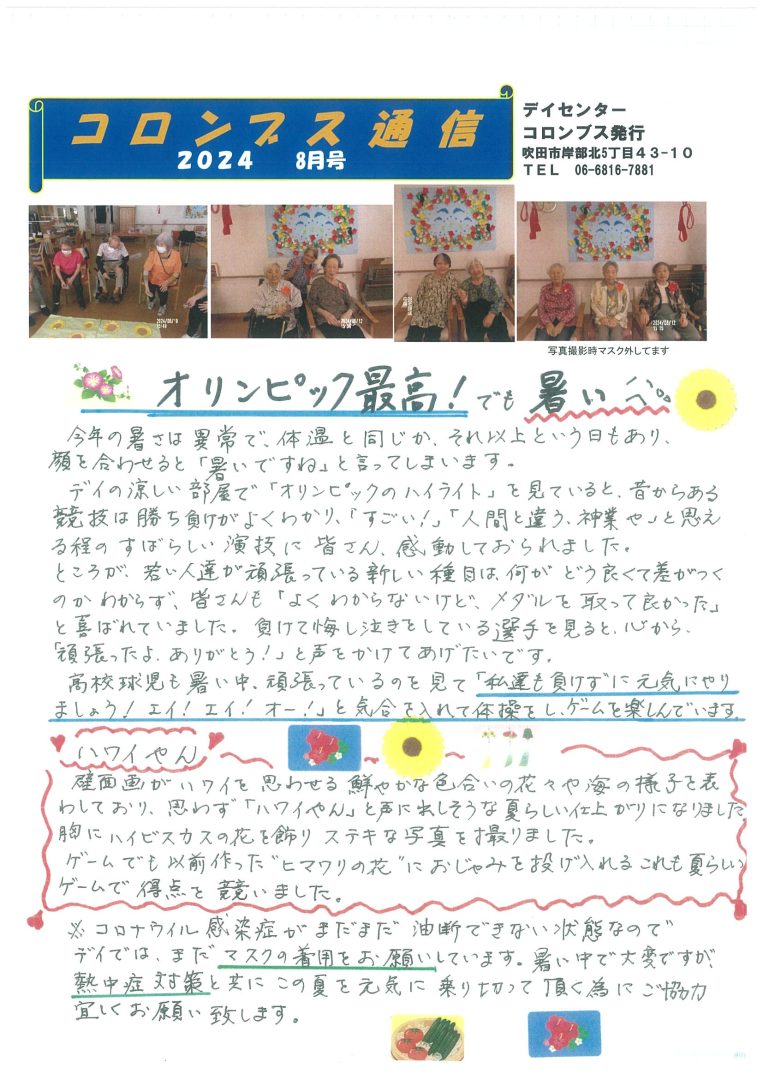 コロンブス通信
2024 8月号
デイセンター
コロンブス発行
吹田市岸部北5丁目43-10
TEL 06-6816-7881
写真撮影時マスク外してます
オリンピック最高!でも暑い
今年の暑さは異常で、体温と同じか、それ以上という日もあり、
顔を合わせると「暑いですね」と言ってしまいます。
デイの涼しい部屋で「オリンピックのハイライト」を見ていると、昔からある
競技は勝ち負けがよくわかり、「すごい!」「人間と違う、神業や」と思え
る程のすばらしい演技に皆さん、感動しておられました。
ところが、若い人達が頑張っている新しい種目は、何がどう良くて差がつく
のかわからず、皆さんも「よくわからないけど、メダルを取って良かった」
と喜ばれていました。負けて悔し泣きをしている選手を見ると、心から、
「頑張ったよ、ありがとう!」と声をかけてあげたいです。
高校球児も暑い中、頑張っているのを見て「私達も負けずに元気にやり
ましょう!エイ!エイ!オー!」と気合を入れて体操をし、ゲームを楽しんでいます。
ハワイやん
壁面画がハワイを思わせる鮮やかな色合いの花々や海の様子を表
わしており、思わず「ハワイやん」と声に出しそうな夏らしい仕上がりになりました。
胸にハイビスカスの花を飾りステキな写真を撮りました。
ゲームでも以前作った"ヒマワリの花"におじゃみを投げ入れるこれも夏らしい
ゲームで得点を競いました。
※コロナウイル感染症がまだまだ油断できない状態なので
デイでは、まだマスクの着用をお願いしています。暑い中で大変ですが、
熱中症対策と共にこの夏を元気に乗り切って頂く為にご協力
宜しくお願い致します。